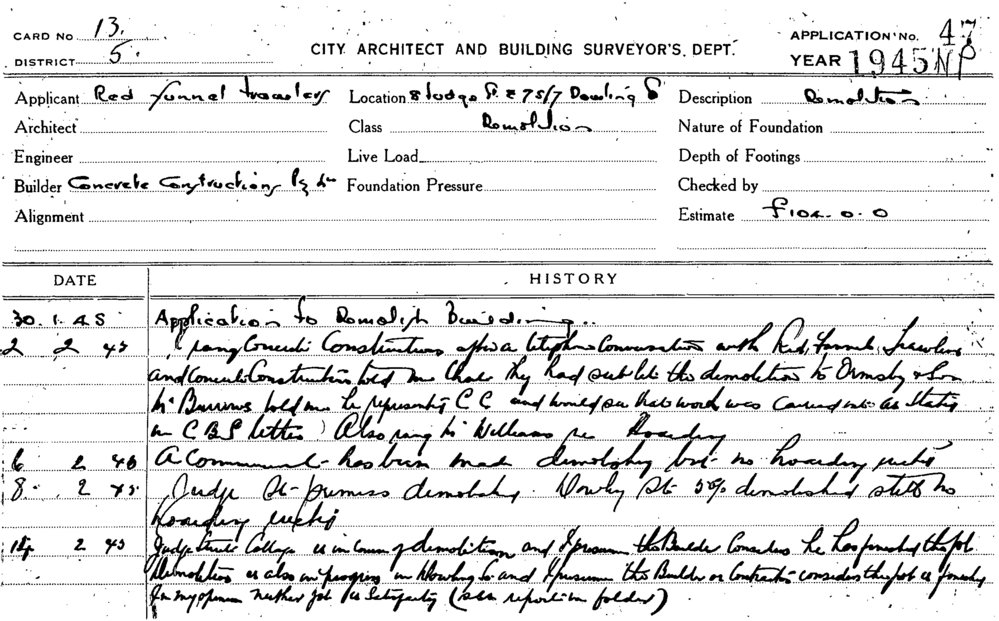 CARD No 13.
DISTRICT 5
CITY ARCHITECT AND BUILDING SURVEYOR'S DEPT.
APPLICATION No. 47
YEAR 1945 NP
Applicant Red Funnel Trawlers
Location 8 Judge St & 75/7 Dowling St
Description Demolition
Architect
Class Demolition
Nature of Foundation
Engineer
Live Load
Depth of Footings
Builder Concrete Constructions Pty Ltd
Foundation Pressure
Checked by
Alignment
Estimate £104.0.0
DATE
HISTORY
30.1.45 Application to Demolish Building.
2 2 45 I rang Concrete Constructions after a telephone conversation with Red Funnel Trawlers
and Concrete Constructions told me that they had sublet the demolition to Ormsby & Son
Mr Burrows told me he represents C C and would see that work was carried out as stated
in C B S letter Also rang Mr Williams re Hoarding
6 2 45 A commencement has been made demolishing but no hoarding erected
8 2 45 Judge St premises demolished. Dowling St 50% demolished still no
hoarding erected
14 2 45 Judge Street Cottage is in course of demolition and I presume the Builder considers he has finished the job
Demolition is also in progress in Dowling St and I presume the Builder or Contractor considers the job is finished
In my opinion neither job is satisfactory (see report in folder)